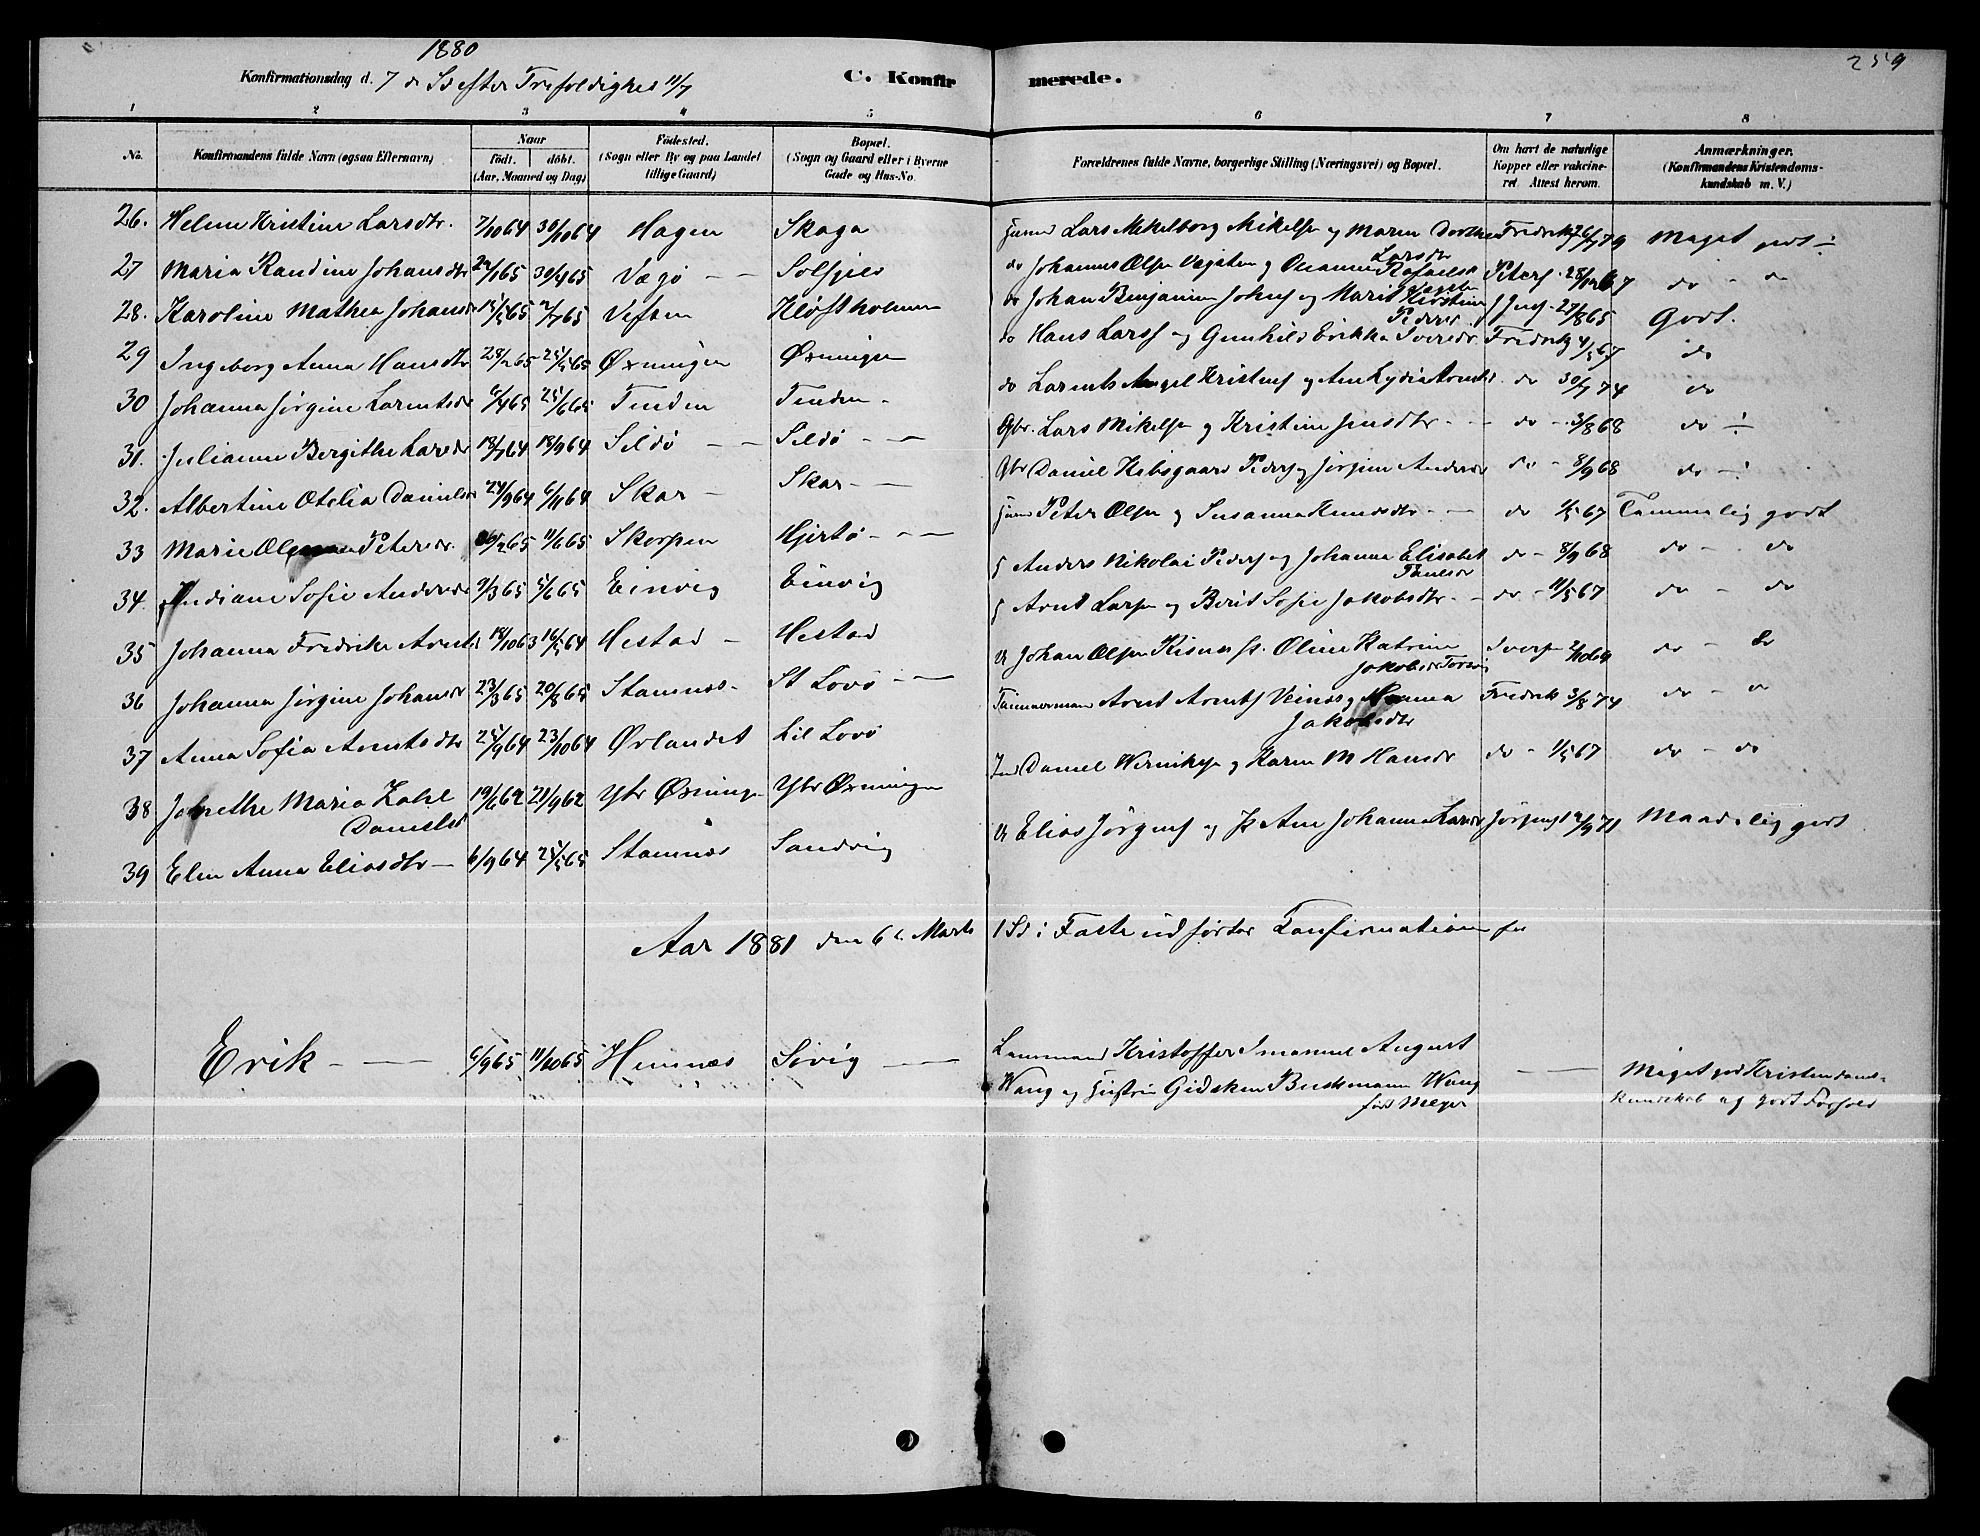 1880
259
Konfirmationsdag d. 7 de S efter Trefoldighed 11/7
C. Konfirmerede.
1 2 3 4 5 6 7 8
No. Konfirmandens fulde Navn (ogsaa Efternavn) Naar født. døbt. (Aar, Maaned og Dag) Fødested. (Sogn eller By og paa Landet tillige Gaard) Bopæl. (Sogn og Gaard eller i Byerne Gade og Hus-No. Forældrenes fulde Navne, borgerlige Stilling (Næringsvei) og Bopæl. Om havt de naturlige Kopper eller vakcineret. Attest herom. Anmærkninger. (Konfirmandens Kristendomskundskab m. V.)
26. Helene Kristine Larsdtr. 7/10 64 30/10 64 Hagen Skaga Lars Mikelborg Mikels og Maren Dorthea Larsdtr Fredrik 26/7 79 Maget godt
27 Maria Randine Johansdtr 24/1 65 30/4 65 Vægø Solfjeld do Johannes Ols og Rafaelsdr Peters 28/12 67 do - do
28. Karoline Mathea Johansdr 15/5 65 2/7 65 Vefsen Kløftholmen do Johan Benjamin Johns og Marit Kirstine Pedersd J Jens 27/8 65 Godt.
29 Ingeborg Anna Hansdtr 28/2 65 25/5 65 Øxningen Øxningen do Hans Larss og Gunhild Erikka Iversdr Fredrik 4/5 67 do
30 Johanna Jørgine Larentsdr 6/4 65 25/6 65 Tenden Tenden - do Larents Angel Kristens og Ane Lydia Arntsd. do 30/7 74 do
31. Julianne Bergithe Larsdr 18/7 64 18/9 64 Sildø Sildø Gbr. Lars Mikels og Kristine Jensdtr - do - 3/8 68 do
32. Albertine Otelia Danielsdr 24/9 64 6/11 64 Skar - Skar - Gbr Daniel Hebsgaard Peders og Jørgine Andersdr do - 8/9 68 do
33 Marie Peterdr. 65 11/6 65 Skorpen Hjertø - Peter Ols og Susanna Knudsdtr - do 1/5 67 Temmelig godt
34. Andersdr 9/3 65 5/6 65 Einvig Einvig Anders Nikolai Peders og Johanna Elisabet Paulsdr do - 8/9 68 do - do
35 Johanna Fredrike Arntsd 18/10 63 16/5 64 Hestad - Hestad Arnt Lars og Berit Sofie Jakobsdtr - do - 11/5 67 do - do
36 Johanna Jørgine Johansdr 23/3 65 20/8 65 Stamnes - St Lovø Johan Ols Oline Katrine Jakobsdr Ivers 2/10 69 do - do
37 Anna Sofia Arntsdtr 25/9 64 23/10 64 Ørlandet Lil Lovø Tømmermand Arnt Arnts og Hanna Jakobsdtr Fredrik 3/8 74 do - do
38 Johrethe Maria Zahl Danielsd 19/6 62 21/9 62 Ytr Øxning Ytr Øxningen Daniel og Karen M Hansdr do - 1/5 67 do - do
39 Elen Anna Eliasdtr - 6/9 64 25/5 65 Stamnes Sandvig Elias Jørgens og Ane Johanna Larsdr Jørgens 71 Maadelig godt
Aar 1881 den 6te Marts 1 Sd i Faste udførtes Konfirmationen for
Erik - 6/9 65 11/10 65 Hemnæs Søvig Lensmand Kristoffer Imanuel August
Wang og Hustru Gidsken Buschmann Wang
født Meyer
Maget god Kristendoms-
kundskab og godt Forhold